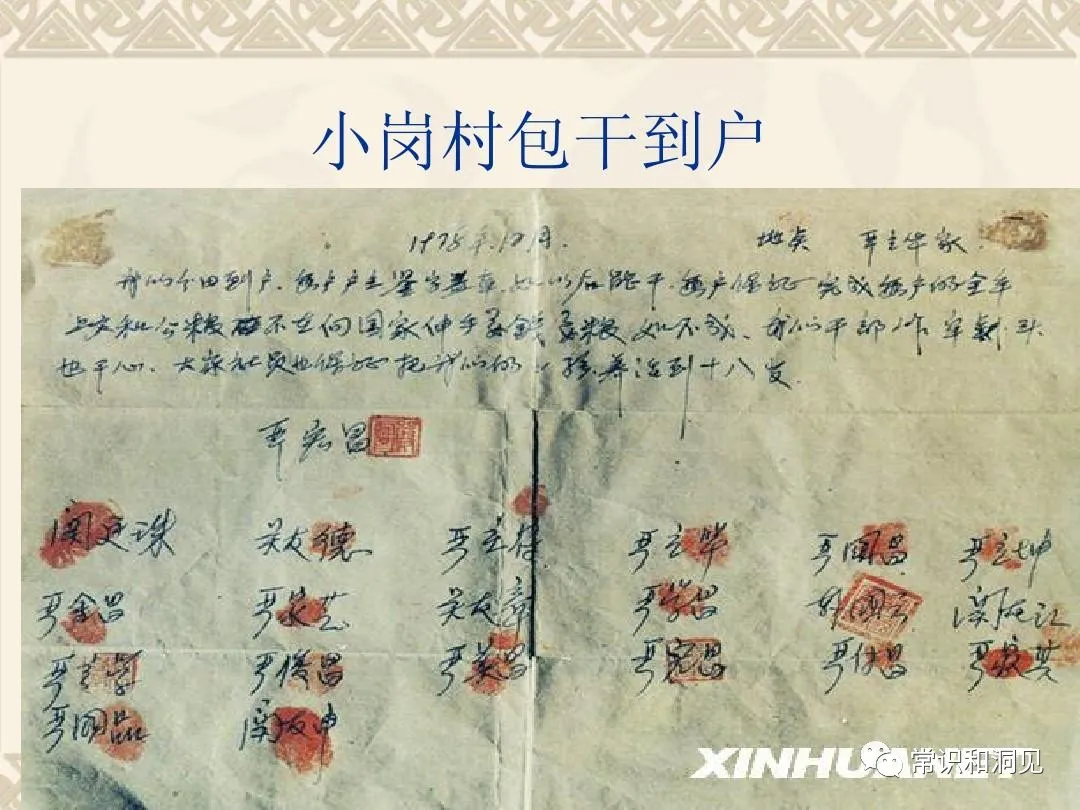 小岗村包干到户
1978年12月. 地点 严立华家.
我们分田到户,每户户主签字盖章,如以后能干,每户保证完成每户的全年
上交和公粮 不在向国家伸手要钱要粮 如不成、我们干部作牢刹头
也干心、大家社员也保证把我们的小孩养活到十八岁.
严宏昌
関廷珠 关友德 严立符 严立华 严国昌 严立坤
严金昌 严家芝 关友章 严学昌 韩国云 関友江
严立学 严俊昌 严美昌 严宏昌 严付昌 严家其
严国品 関友申
XINHUANET
常识和洞见